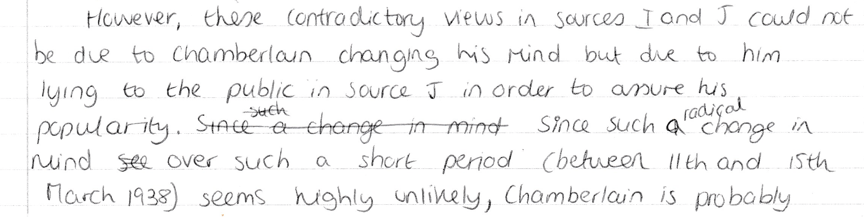 However, these contradictory views in sources I and J could not
be due to Chamberlain changing his mind but due to him
lying to the public in source J in order to assure his
popularity. Since such a change in mind Since such a radical change in
mind see over such a short period (between 11th and 15th
March 1938) seems highly unlikely, Chamberlain is probably